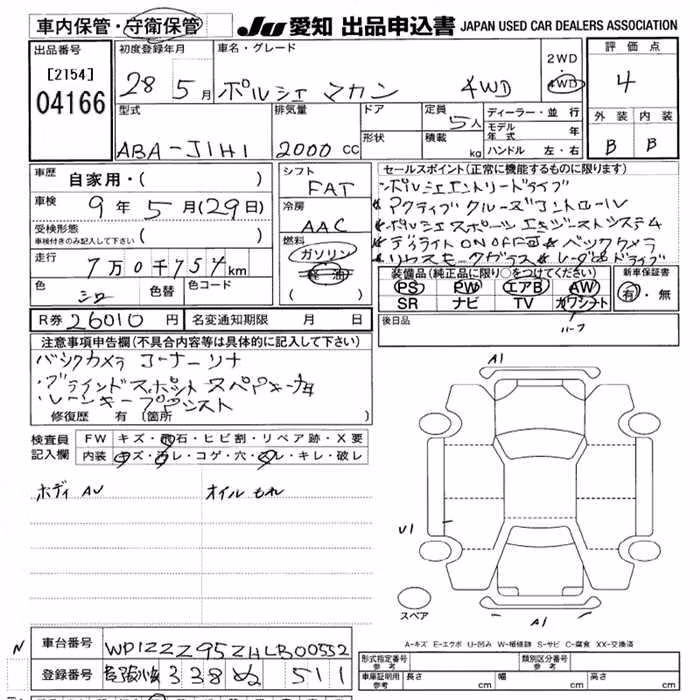 車内保管・守衛保管 JU 愛知 出品申込書 JAPAN USED CAR DEALERS ASSOCIATION
出品番号 初度登録年月 車名・グレード 2WD 評価点
[2154] 28 5月 ポルシェ マカン 4WD 4WD 4
04166
型式 排気量 ドア 定員 5人 ディーラー・並行 外装 内装
モデル年式 年
ABA-J1H1 2000 CC 形状 積載 kg ハンドル 左・右 B B
車歴 自家用・( ) シフト セールスポイント(正常に機能するものに限ります)
FAT ポルシェエントリードライブ
車検 9年5月(29日) 冷房 アクティブクルーズコントロール
受検形態 AAC ポルシェスポーツエキゾーストシステム
車検付きのみ記入して下さい ( ) 燃料 デイライトON OFF可 バックカメラ
走行 7万0千754km ガソリン
軽油 装備品(純正品に限り○をつけてください) 新車保証書
色 シロ 色替 色コード ( ) PS PW エアB AW 有・無
SR ナビ TV カワシート
R券 26010 円 名変通知期限 月 日 後日品 ハーフ
注意事項申告欄(不具合内容等は具体的に記入して下さい)
バックカメラ コーナーソナ A1
ブラインドスポット スペアキー有
レーンキープアシスト
修復歴 有(箇所 )
検査員 FW キズ・飛石・ヒビ割・リペア跡・X要
記入欄 内装 キズ・汚レ・コゲ・穴・スレ・キレ・破レ
ボディ AU オイルもれ
U1
スペア A1
A-キズ E-エクボ U-凹み W-補修跡 S-サビ C-腐食 XX-交換済
N 車台番号 WP1ZZZ95ZHLB00552 形式指定番号 参考 類別区分番号 参考
登録番号 338 ぬ 511 車庫証明用 参考 長さ cm 幅 cm 高さ cm